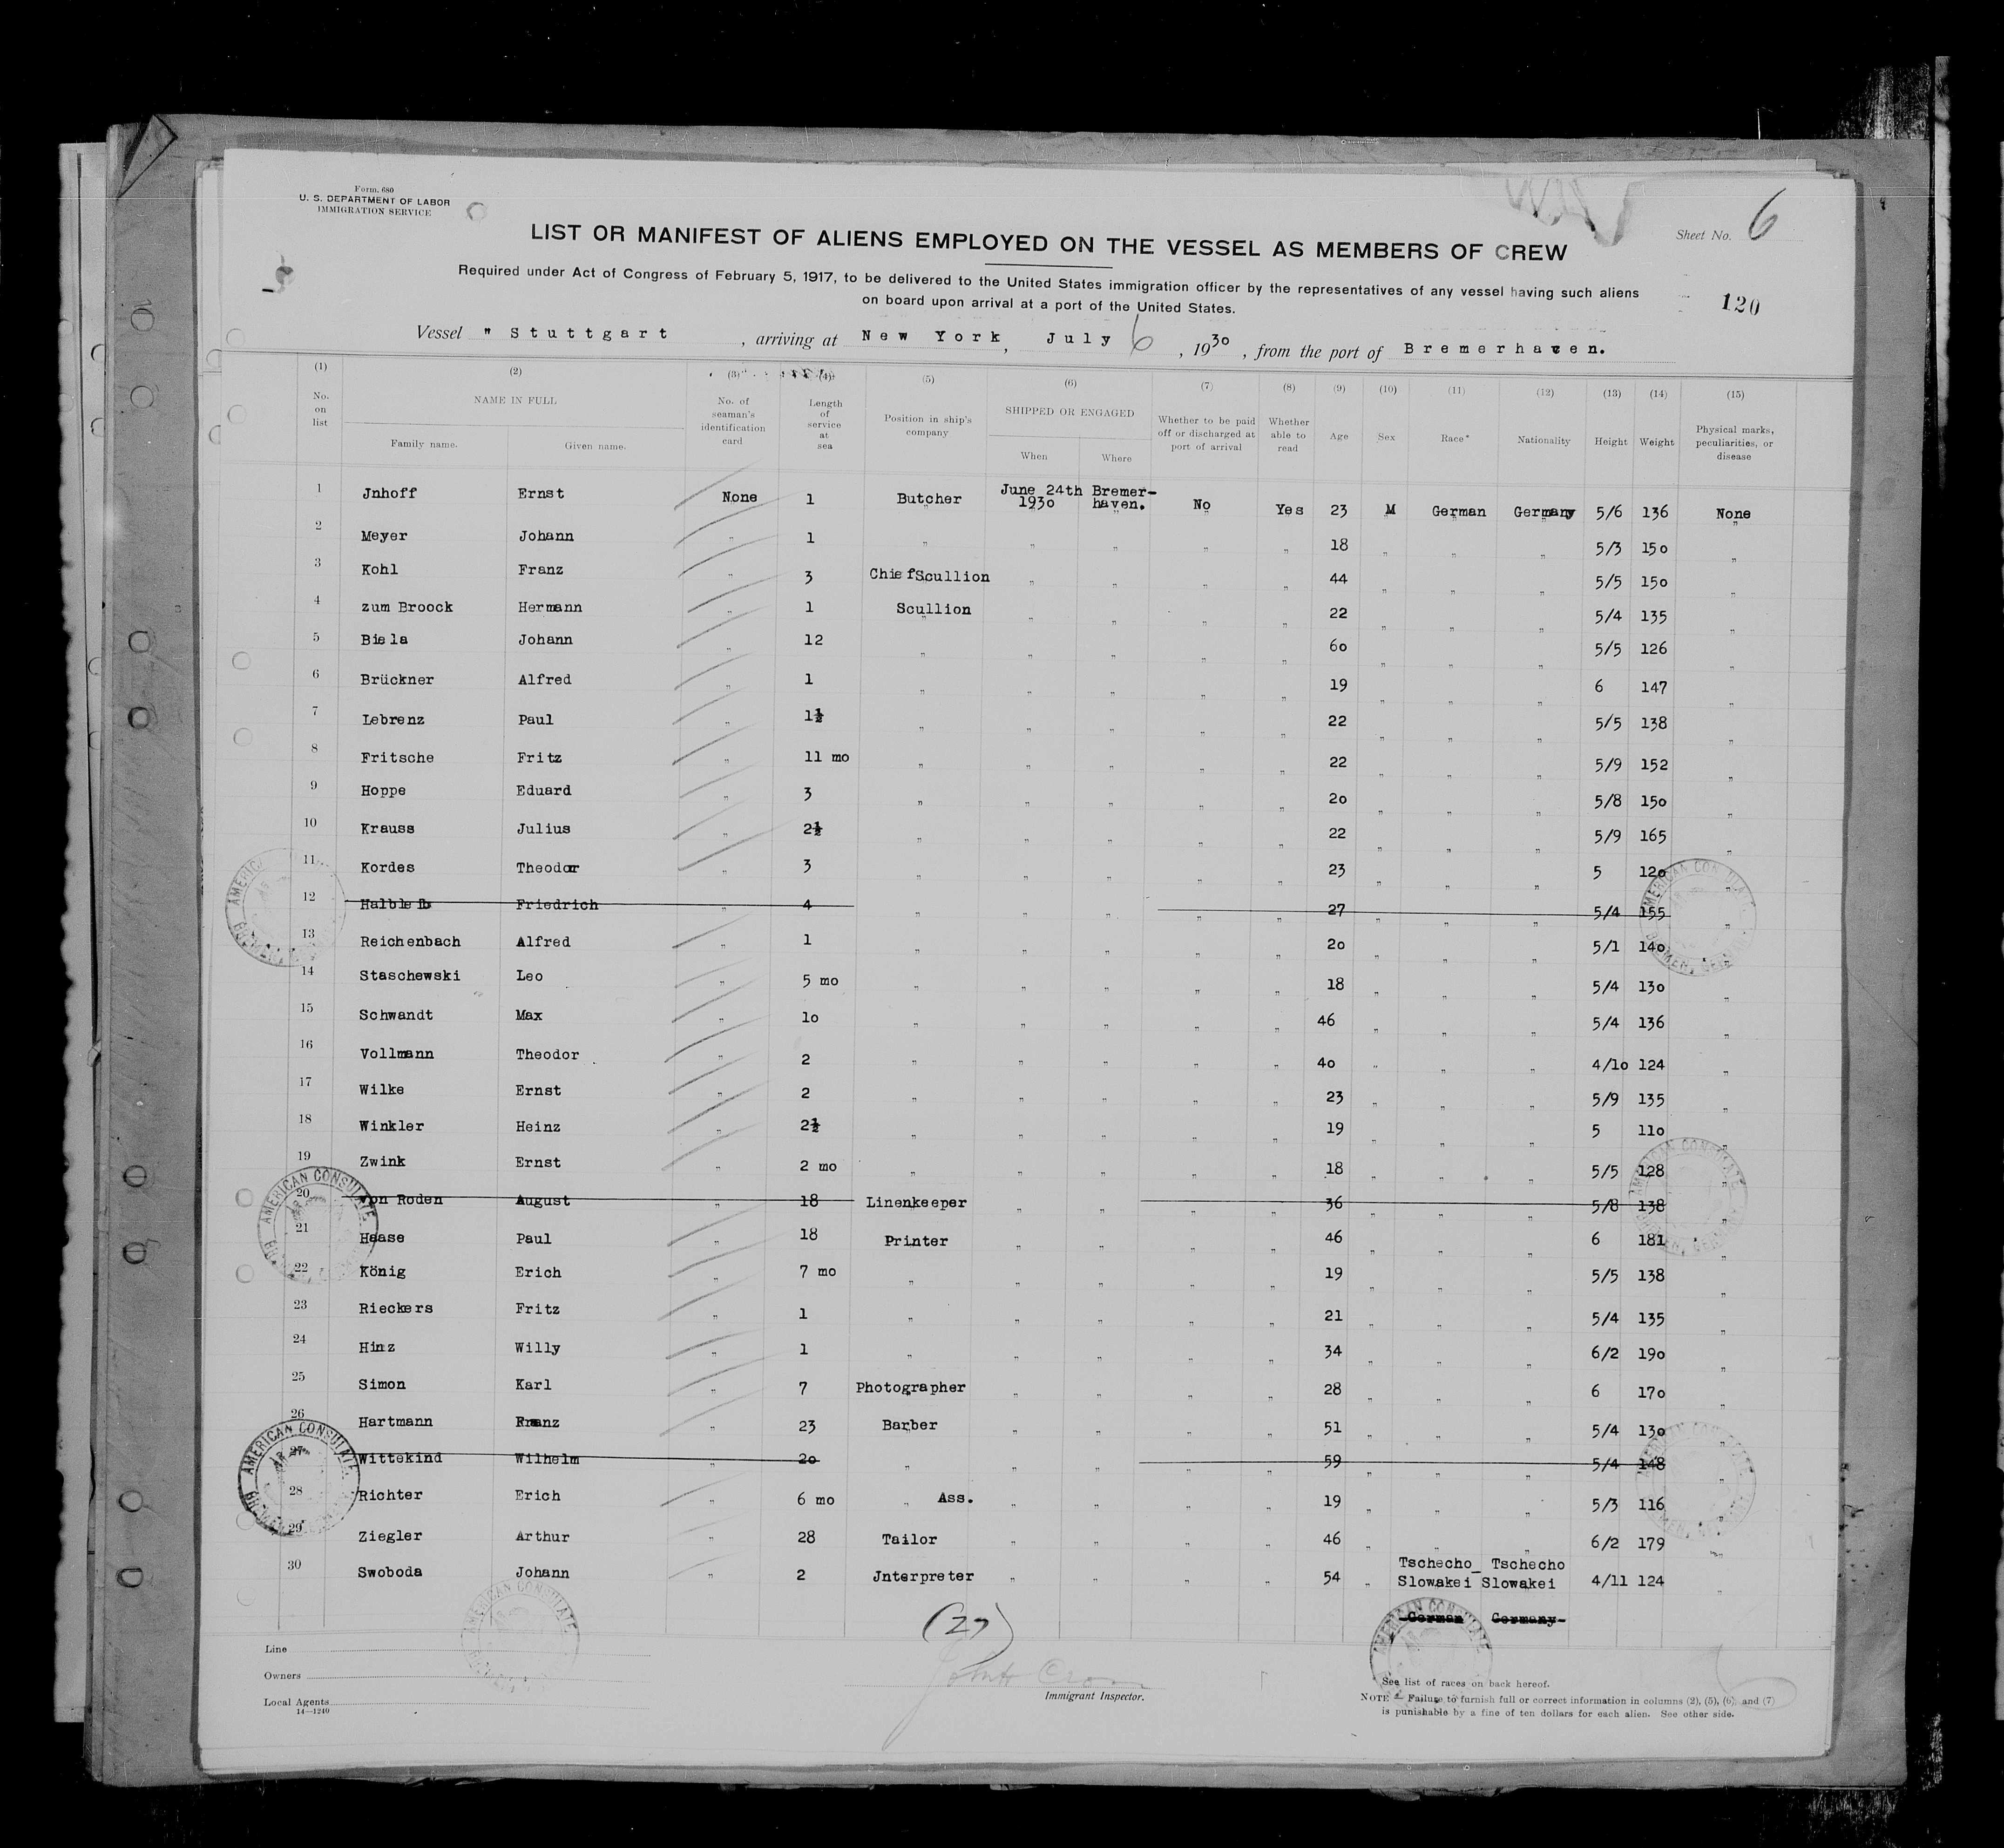 Form. 680
U. S. DEPARTMENT OF LABOR
IMMIGRATION SERVICE
Sheet No. 6
LIST OR MANIFEST OF ALIENS EMPLOYED ON THE VESSEL AS MEMBERS OF CREW
Required under Act of Congress of February 5, 1917, to be delivered to the United States immigration officer by the representatives of any vessel having such aliens
on board upon arrival at a port of the United States.
120
Vessel " Stuttgart , arriving at New York, July 6 , 1930 , from the port of Bremerhaven.
(1) (2) (3) (4) (5) (6) (7) (8) (9) (10) (11) (12) (13) (14) (15)
No. on list NAME IN FULL Family name. Given name. No. of seaman's identification card Length of service at sea Position in ship's company SHIPPED OR ENGAGED When Where Whether to be paid off or discharged at port of arrival Whether able to read Age Sex Race* Nationality Height Weight Physical marks, peculiarities, or disease
1 Jnhoff Ernst None 1 Butcher June 24th 1930 Bremer-haven. No Yes 23 M German Germany 5/6 136 None
2 Meyer Johann " 1 " " " " " 18 " " " 5/3 150 "
3 Kohl Franz " 3 Chief Scullion " " " " 44 " " " 5/5 150 "
4 zum Broock Hermann " 1 Scullion " " " " 22 " " " 5/4 135 "
5 Biela Johann " 12 " " " " " 60 " " " 5/5 126 "
6 Brückner Alfred " 1 " " " " " 19 " " " 6 147 "
7 Lebrenz Paul " 1½ " " " " " 22 " " " 5/5 138 "
8 Fritsche Fritz " 11 mo " " " " " 22 " " " 5/9 152 "
9 Hoppe Eduard " 3 " " " " " 20 " " " 5/8 150 "
10 Krauss Julius " 2½ " " " " " 22 " " " 5/9 165 "
11 Kordes Theodor " 3 " " " " " 23 " " " 5 120 "
12 Friedrich " 4 " " " " " 27 " " " 5/4 155 "
13 Reichenbach Alfred " 1 " " " " " 20 " " " 5/1 140 "
14 Staschewski Leo " 5 mo " " " " " 18 " " " 5/4 130 "
15 Schwandt Max " 10 " " " " " 46 " " " 5/4 136 "
16 Vollmann Theodor " 2 " " " " " 40 " " " 4/10 124 "
17 Wilke Ernst " 2 " " " " " 23 " " " 5/9 135 "
18 Winkler Heinz " 2½ " " " " " 19 " " " 5 110 "
19 Zwink Ernst " 2 mo " " " " " 18 " " " 5/5 128 "
20 von Roden August " 18 Linenkeeper " " " " 36 " " " 5/8 138 "
21 Haase Paul " 18 Printer " " " " 46 " " " 6 181 "
22 König Erich " 7 mo " " " " " 19 " " " 5/5 138 "
23 Rieckers Fritz " 1 " " " " " 21 " " " 5/4 135 "
24 Hinz Willy " 1 " " " " " 34 " " " 6/2 190 "
25 Simon Karl " 7 Photographer " " " " 28 " " " 6 170 "
26 Hartmann Franz " 23 Barber " " " " 51 " " " 5/4 130 "
27 Wittekind Wilhelm " 20 " " " " " 59 " " " 5/4 148 "
28 Richter Erich " 6 mo " Ass. " " " " 19 " " " 5/3 116 "
29 Ziegler Arthur " 28 Tailor " " " " 46 " " " 6/2 179 "
30 Swoboda Johann " 2 Jnterpreter " " " " 54 " Tschecho_Slowakei Tschecho Slowakei 4/11 124 "
German Germany
(27)
Line
Owners
Local Agents
14—1240
Immigrant Inspector.
See list of races on back hereof.
NOTE.—Failure to furnish full or correct information in columns (2), (5), (6), and (7)
is punishable by a fine of ten dollars for each alien. See other side.
AMERICAN CONSULATE
AMERICAN CONSULATE
AMERICAN CONSULATE